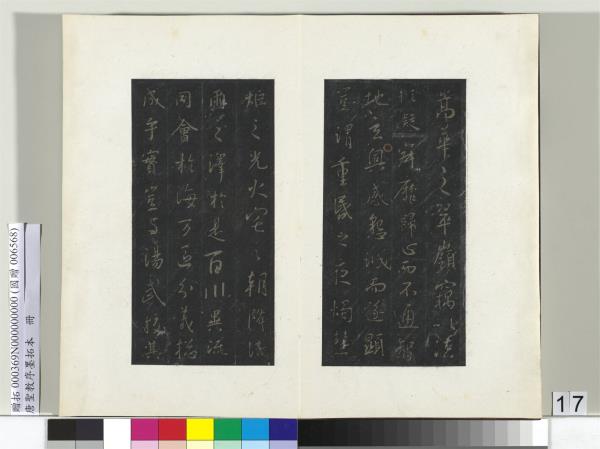 嵩華之翠嶺竊以法
性凝寂靡歸心而不通智
地玄奧感懇誠而遂顯
豈謂重昏之夜燭慧
炬之光火宅之朝降法
雨之澤於是百川異流
同會於海万區分義總
成乎實豈与湯武校其
贈拓 000369N000000000 (國贈 006568)
唐聖教序墨拓本 冊
17